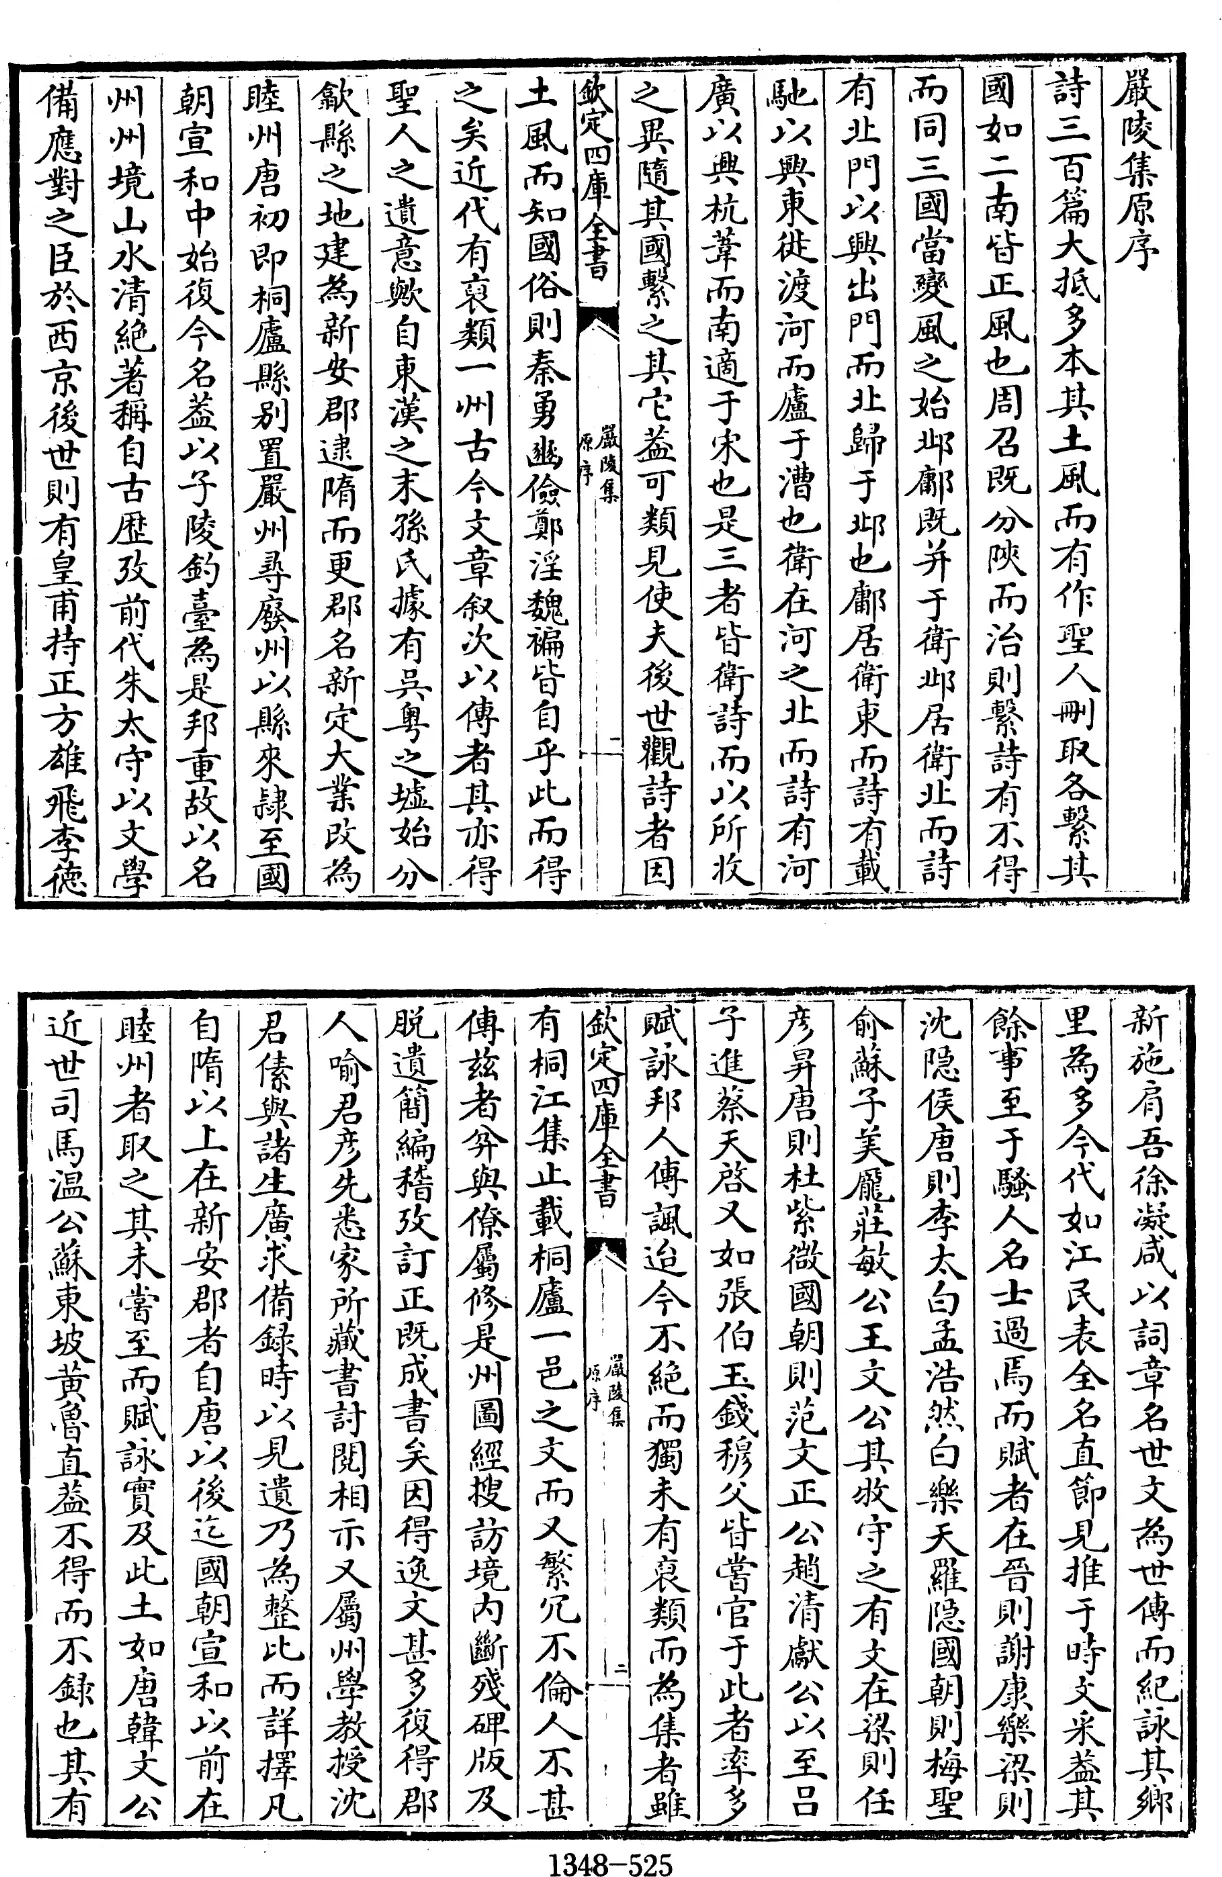 嚴陵集原序
詩三百篇大抵多本其土風而有作聖人刪取各繫其
國如二南皆正風也周召既分陜而治則繫詩有不得
而同三國當變風之始邶鄘既并于衛邶居衛北而詩
有北門以興出門而北歸于邶也鄘居衛東而詩有載
馳以興東徙渡河而廬于漕也衛在河之北而詩有河
廣以興杭葦而南適于宋也是三者皆衛詩而以所收
之異隨其國繫之其它葢可類見使夫後世觀詩者因
欽定四庫全書
嚴陵集
原序
一
土風而知國俗則秦勇豳儉鄭淫魏褊皆自乎此而得
之矣近代有裒類一州古今文章叙次以傳者其亦得
聖人之遺意歟自東漢之末孫氏據有吳粤之墟始分
歙縣之地建為新安郡逮隋而更郡名新定大業改為
睦州唐初即桐廬縣別置嚴州尋廢州以縣來隷至國
朝宣和中始復今名葢以子陵釣臺為是邦重故以名
州州境山水清絶著稱自古歴攷前代朱太守以文學
備應對之臣於西京後世則有皇甫持正方雄飛李德
新施肩吾徐凝咸以詞章名世文為世傳而紀詠其鄉
里為多今代如江民表全名直節見推于時文采葢其
餘事至于騷人名士過焉而賦者在晉則謝康樂梁則
沈隐侯唐則李太白孟浩然白樂天羅隐國朝則梅聖
俞蘇子美龎莊敏公王文公其牧守之有文在梁則任
彦昇唐則杜紫微國朝則范文正公趙清獻公以至吕
子進蔡天啓又如張伯玉錢穆父皆嘗官于此者率多
賦詠邦人傳諷迨今不絶而獨未有裒類而為集者雖
欽定四庫全書
嚴陵集
原序
二
有桐江集止載桐廬一邑之文而又繁冗不倫人不甚
傳兹者弅與僚屬修是州圖經搜訪境内斷殘碑版及
脱遺簡編稽攷訂正既成書矣因得逸文甚多復得郡
人喻君彦先悉家所藏書討閱相示又屬州學教授沈
君傃與諸生廣求備録時以見遺乃為整比而詳擇凡
自隋以上在新安郡者自唐以後迄國朝宣和以前在
睦州者取之其未嘗至而賦詠實及此土如唐韓文公
近世司馬温公蘇東坡黄魯直葢不得而不録也其有
1348-525